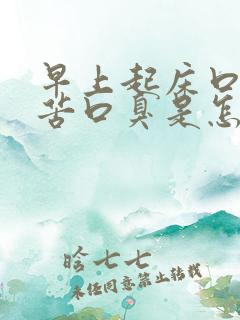 早上起床口
苦口臭是怎
晗七七
未经同意禁止转载